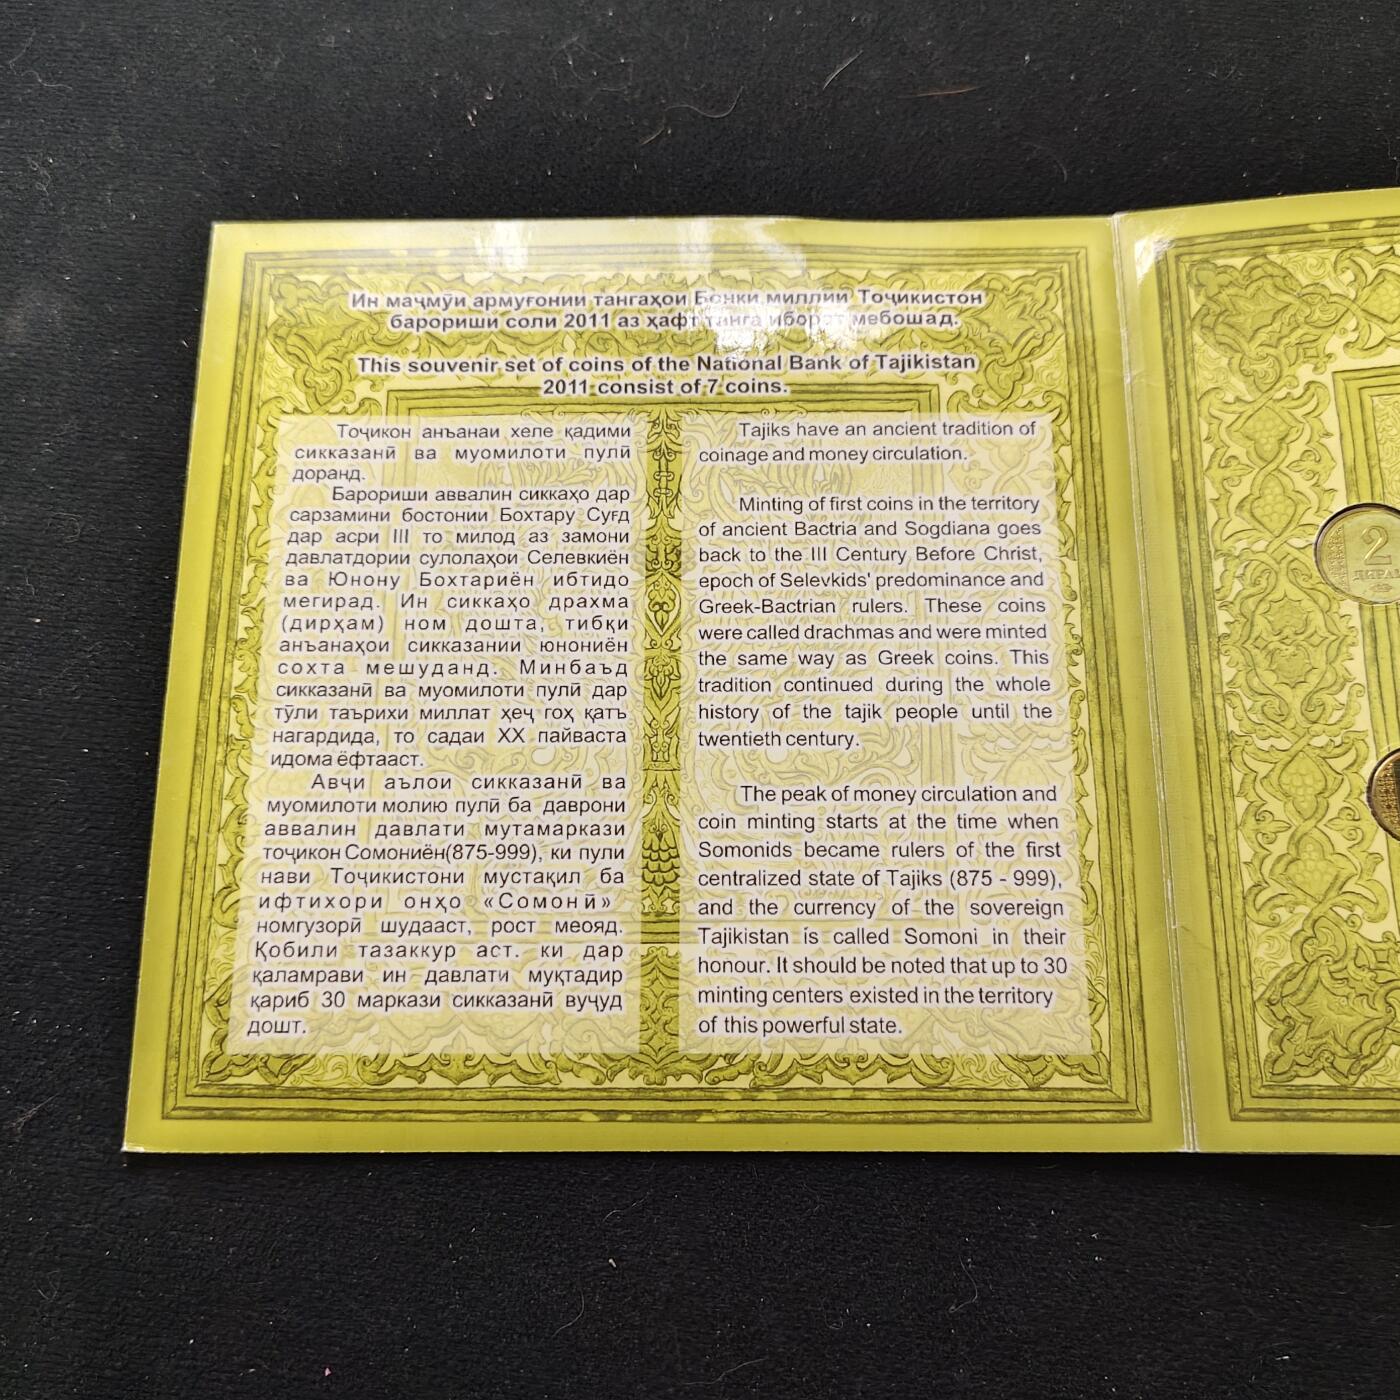 Ин маҷмӯи армуғонии тангаҳои Бонки миллии Тоҷикистон
барориши соли 2011 аз ҳафт танга иборат мебошад.
This souvenir set of coins of the National Bank of Tajikistan
2011 consist of 7 coins.
Тоҷикон анъанаи хеле қадими
сикказанӣ ва муомилоти пулӣ
доранд.
Барориши аввалин сиккаҳо дар
сарзамини бостонии Бохтару Суғд
дар асри III то милод аз замони
давлатдории сулолаҳои Селевкиён
ва Юнону Бохтариён ибтидо
мегирад. Ин сиккаҳо драхма
(дирҳам) ном дошта, тибқи
анъанаҳои сикказании юнониён
сохта мешуданд. Минбаъд
сикказанӣ ва муомилоти пулӣ дар
тӯли таърихи миллат ҳеҷ гоҳ қатъ
нагардида, то садаи XX пайваста
идома ёфтааст.
Авҷи аълои сикказанӣ ва
муомилоти молию пулӣ ба даврони
аввалин давлати мутамаркази
тоҷикон Сомониён(875-999), ки пули
нави Тоҷикистони мустақил ба
ифтихори онҳо «Сомонӣ»
номгузорӣ шудааст, рост меояд.
Қобили тазаккур аст. ки дар
қаламрави ин давлати муқтадир
қариб 30 маркази сикказанӣ вуҷуд
дошт.
Tajiks have an ancient tradition of
coinage and money circulation.
Minting of first coins in the territory
of ancient Bactria and Sogdiana goes
back to the III Century Before Christ,
epoch of Selevkids' predominance and
Greek-Bactrian rulers. These coins
were called drachmas and were minted
the same way as Greek coins. This
tradition continued during the whole
history of the tajik people until the
twentieth century.
The peak of money circulation and
coin minting starts at the time when
Somonids became rulers of the first
centralized state of Tajiks (875 - 999),
and the currency of the sovereign
Tajikistan is called Somoni in their
honour. It should be noted that up to 30
minting centers existed in the territory
of this powerful state.
2